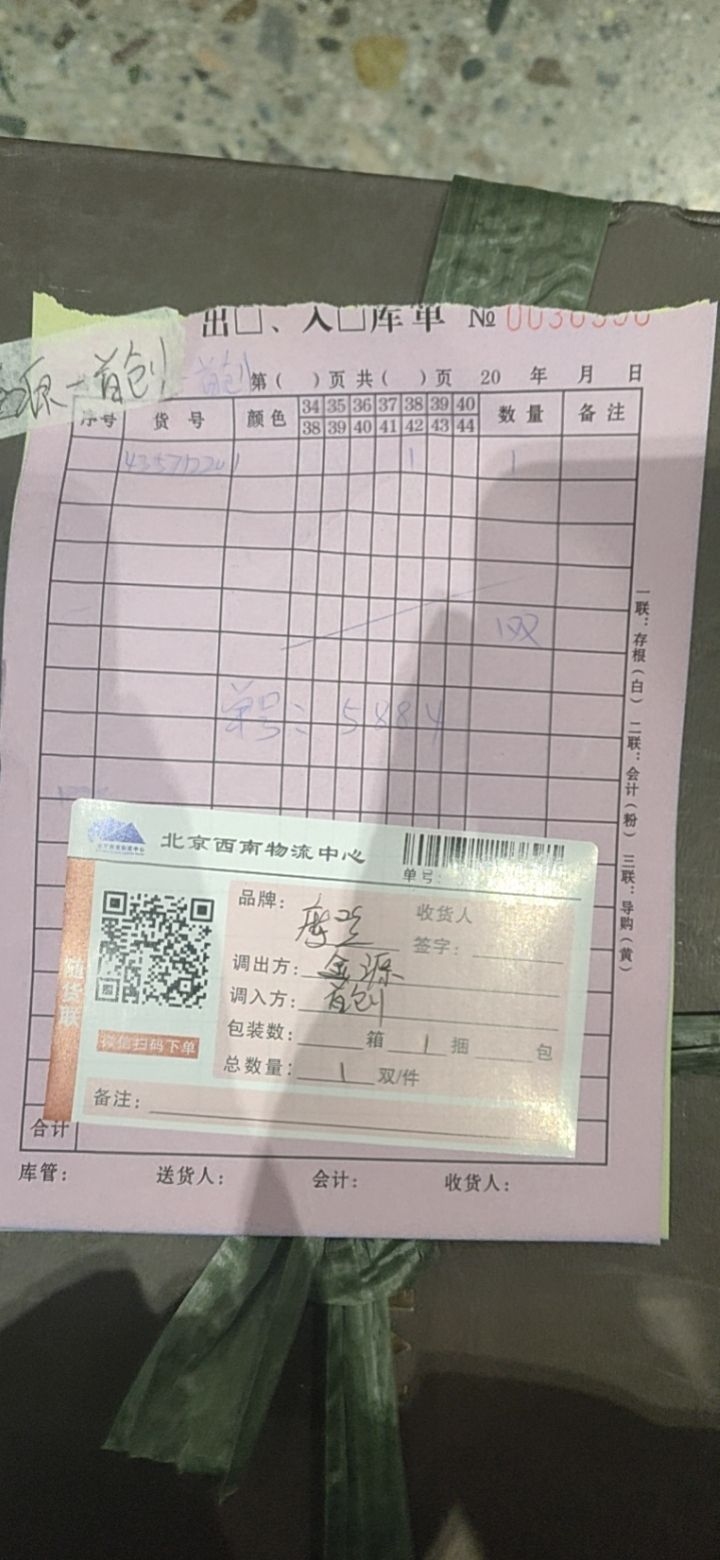 出□、入□库单 №
源—首创 首创 第（ ）页 共（ ）页 20 年 月 日
序号 货号 颜色 34 35 36 37 38 39 40 数量 备注
38 39 40 41 42 43 44
1 1
1双
单号: 5884
一联：存根（白） 二联：会计（粉） 三联：导购（黄）
北京西南物流中心
单号:
随货联
微信扫码下单
品牌: 收货人
签字:
调出方: 金源
调入方: 首创
包装数: 箱 1 捆 包
总数量: 1 双/件
备注:
合计
库管: 送货人: 会计: 收货人: